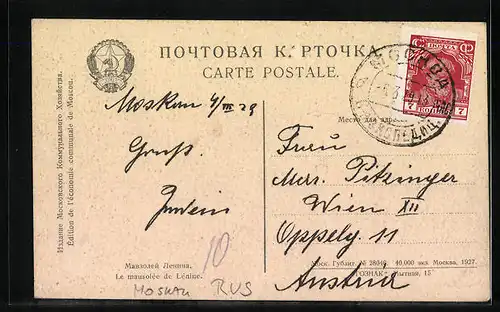 ПОЧТОВАЯ К. РТОЧКА.
CARTE POSTALE.
Издание Московского Коммунального Хозяйства.
Edition de l'économie communale de Moscou.
Moskau 4/III 29
Gruß
Место для адреса
ПОЧТА
7 7
МОСКВА
ЭКСПЕДИЦ.
Frau
Merc. Pitzinger
Wien XII
Oppelg. 11
Austria
Мавзолей Ленина.
Le mausolée de Lénine.
Моск. Гублит. № 38046. 40.000 экз. Москва, 1927.
"ГОЗНАК" Мытная, 15
10
MOSKAU RUS